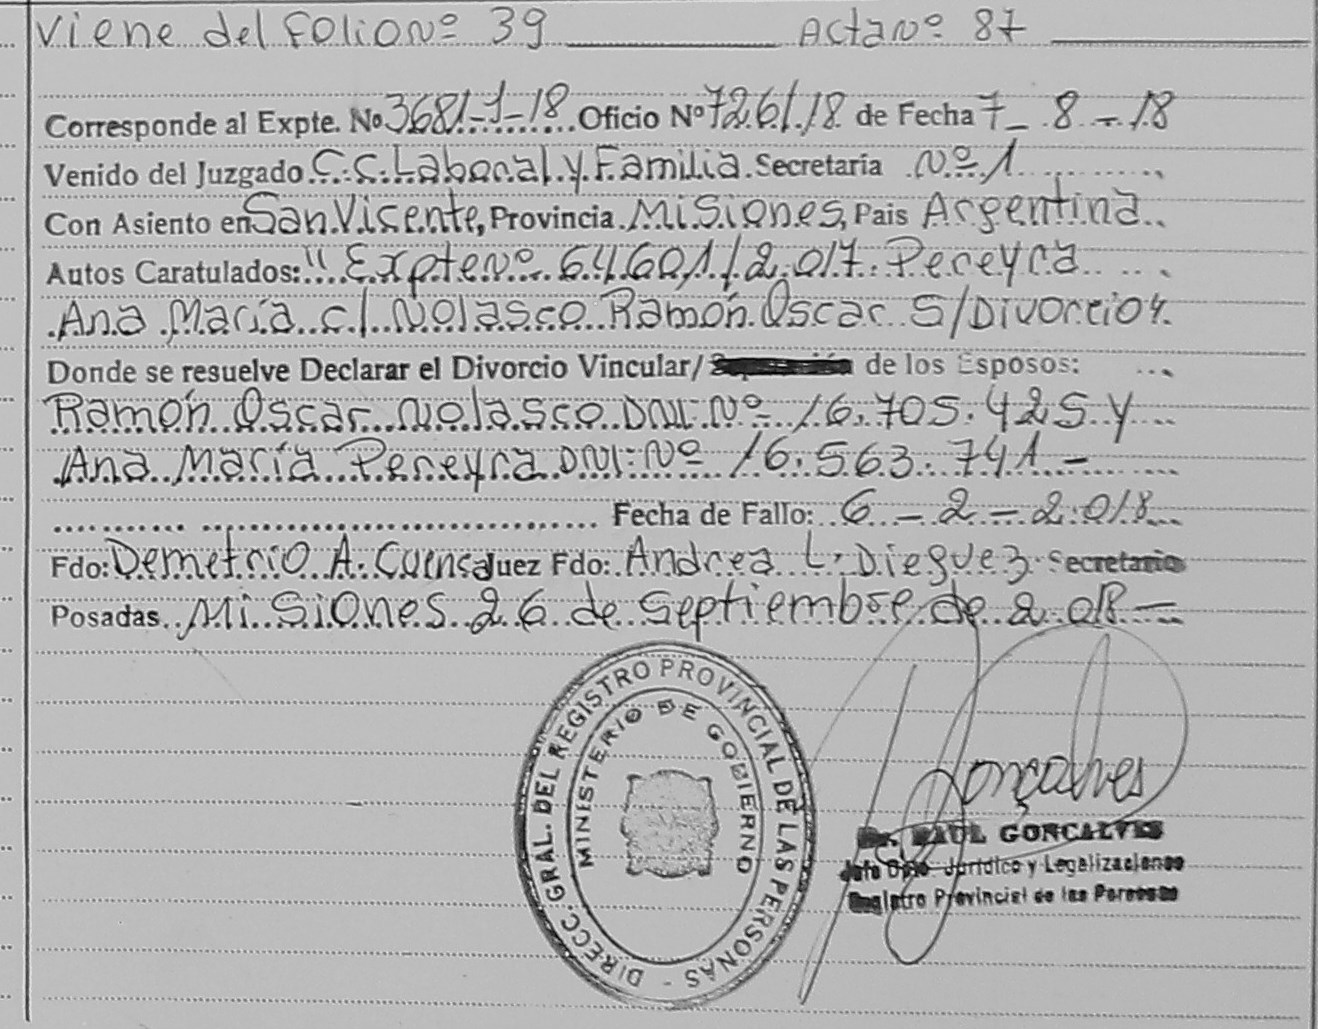 Viene del Folio Nº 39 Acta Nº 87
Corresponde al Expte. No 3681-1-18 Oficio Nº 726/18 de Fecha 7 - 8 - 18
Venido del Juzgado C.C. Laboral y Familia Secretaría Nº 1
Con Asiento en San Vicente, Provincia Misiones, Pais Argentina
Autos Caratulados: "Expte Nº 64601/2017 Pereyra
Ana María c/ Nolasco Ramón Oscar S/Divorcio".
Donde se resuelve Declarar el Divorcio Vincular/ de los Esposos:
Ramón Oscar Nolasco DNI Nº 16.705.425 y
Ana María Pereyra DNI Nº 16.563.741 -
Fecha de Fallo: 6 - 2 - 2018
Fdo: Demetrio A. Cuenca Juez Fdo: Andrea L. Dieguez Secretario
Posadas, Misiones 26 de Septiembre de 2018 -
DIRECC. GRAL. DEL REGISTRO PROVINCIAL DE LAS PERSONAS -
MINISTERIO DE GOBIERNO
Gonçalves
Dr. RAUL GONCALVES
Jefe Dpto. Jurídico y Legalizaciones
Registro Provincial de las Personas